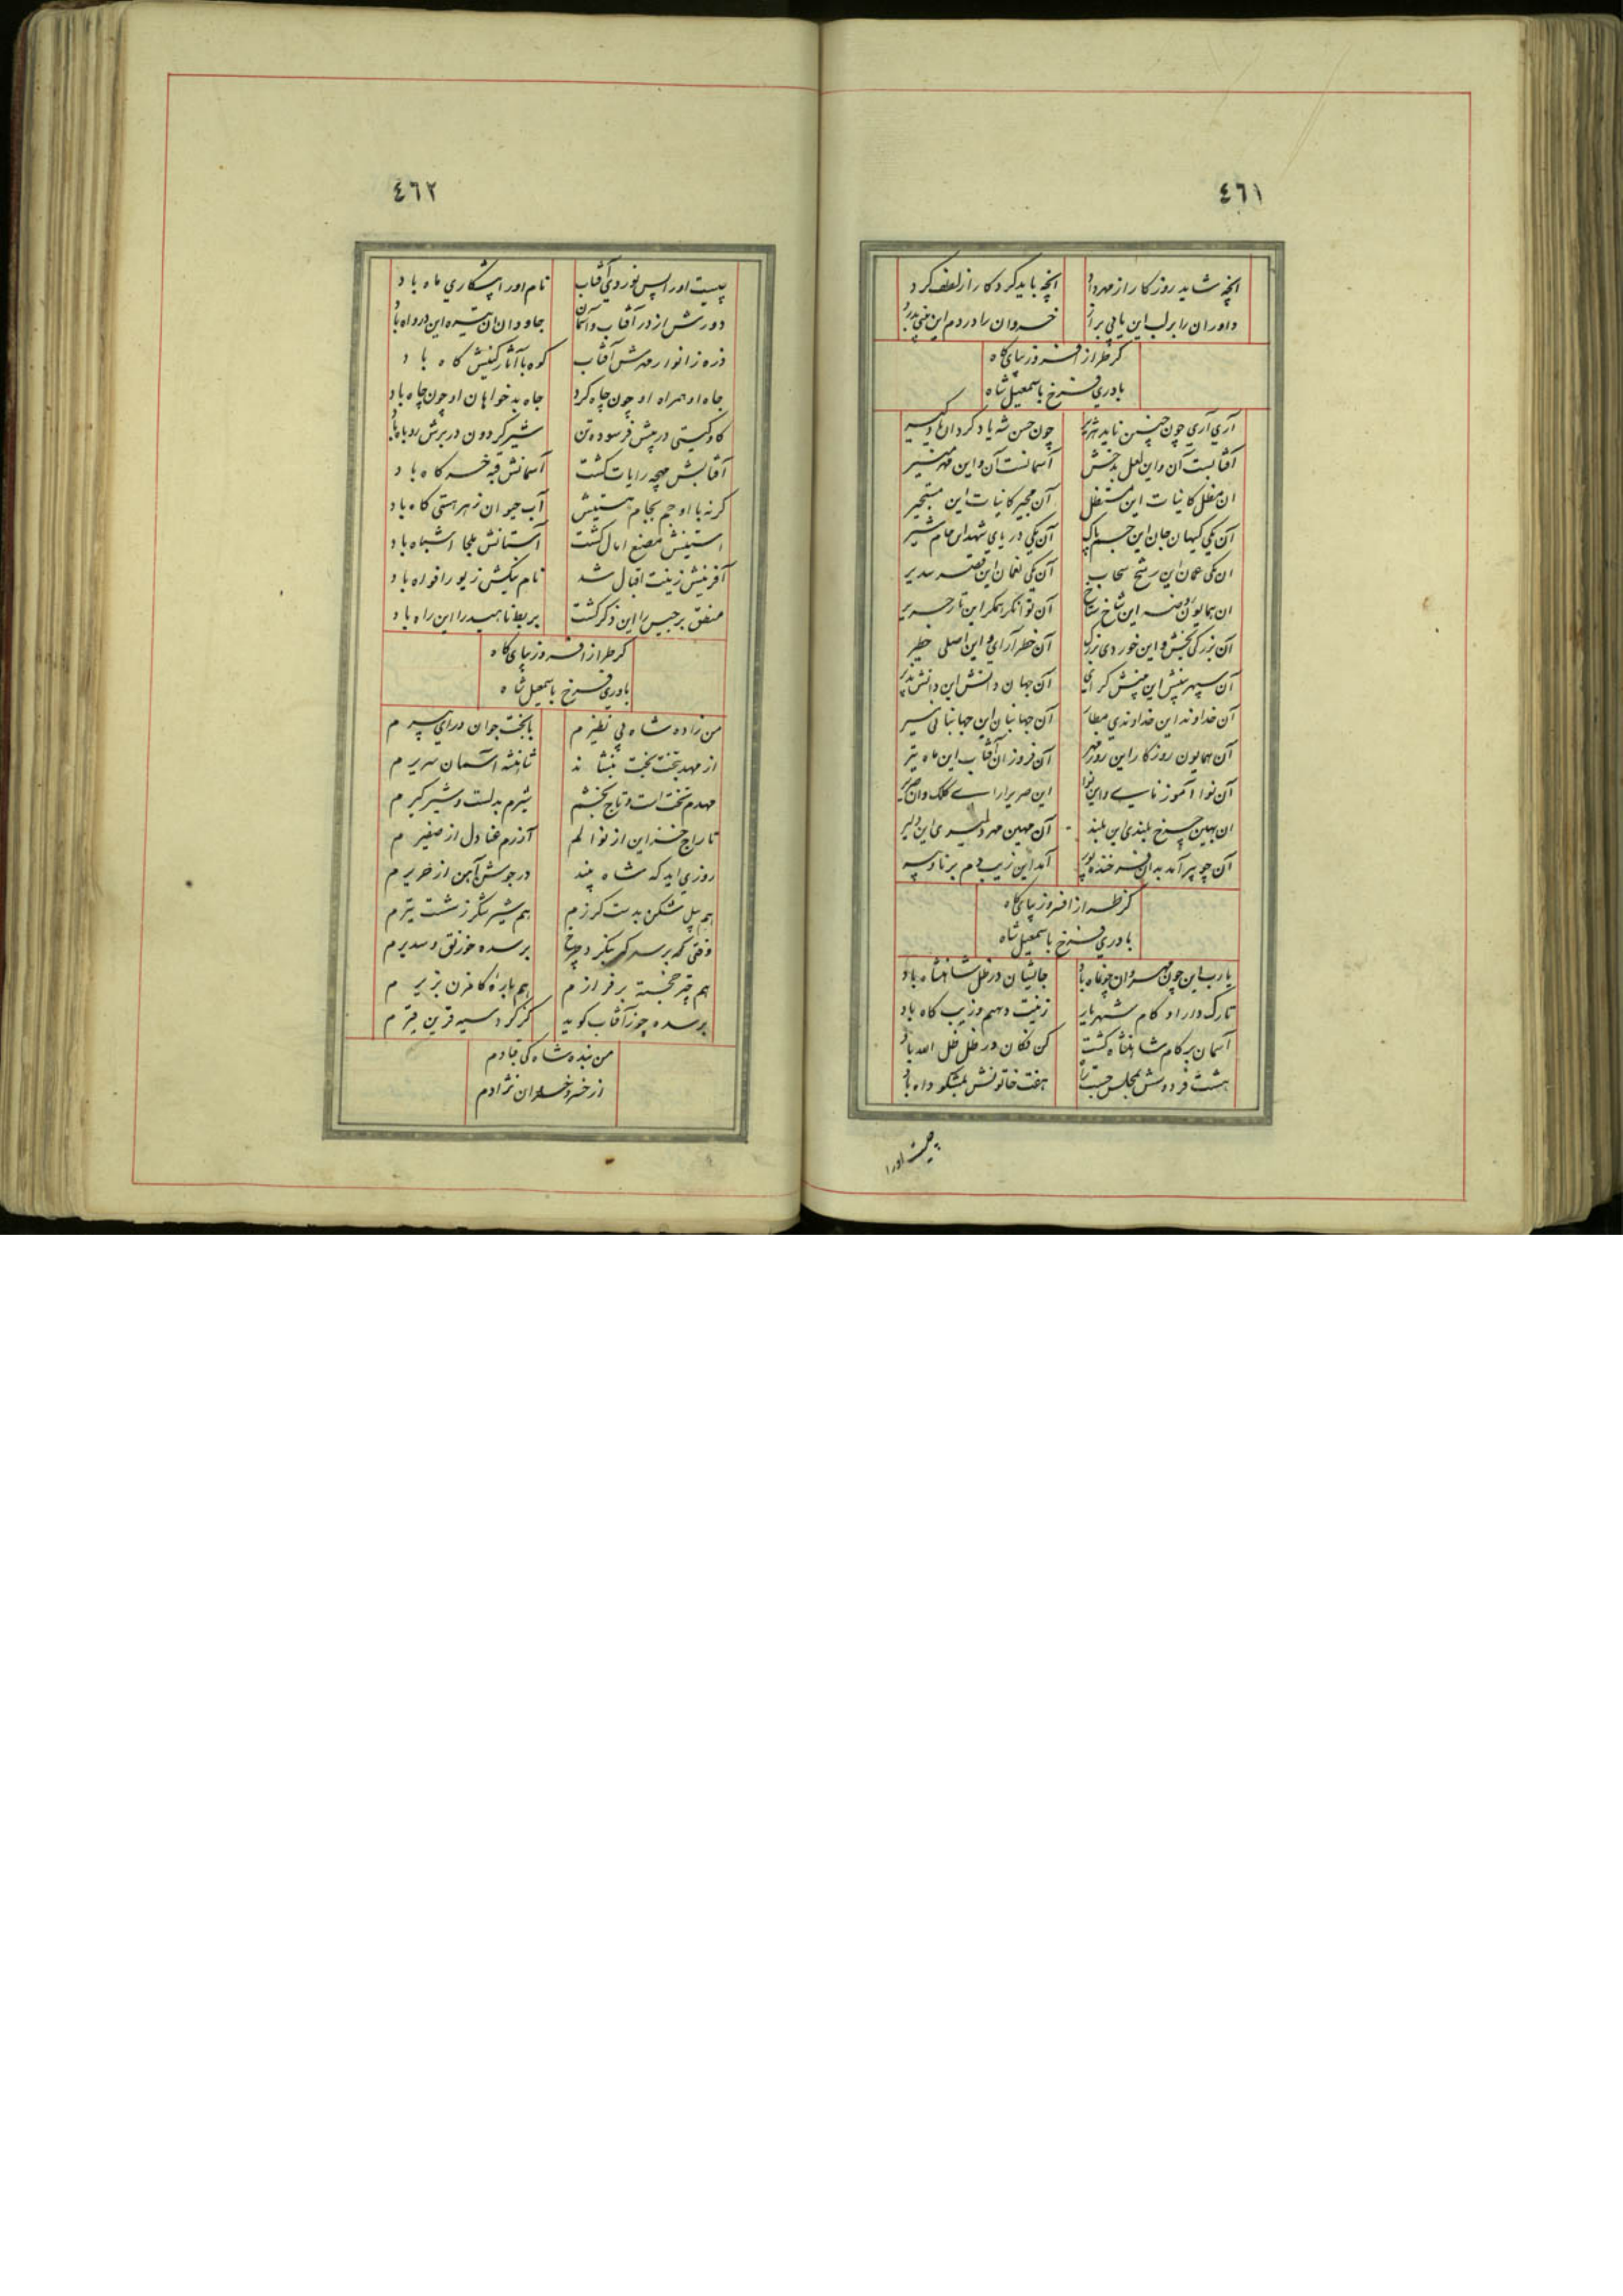 ٤٦١
انچه شاید روزکار از مهر داد انچه باید کردکار از لطف کرد
داوران را بر لب این یا بی پدر خسروان را در دم این
کر طراز افسر و زیبای کاه
یادری فرخ باسمعیل شاه
آری آری چون چنین ناید چون حسن شه یاد کردان
آفتابست آن و این لعل بدخش آسمانست آن و این مهر منیر
ان مظل کاینات این مستظل آن مجیر کاینات این مستجیر
آن یکی کیهان جان این جسم پاک آن یکی دریای شهد این جام شیر
ان یکی عمان این رشح سحاب آن یکی نعمان این قصر سدیر
ان همایون روضه این شاخ آن توانکر همکر این تار حریر
آن بزرکی بخش و این خوردی بزرک آن خطر آرای و این اصلی خطیر
آن سپهر بینش این بینش کرای آن جهان دانش این دانش پذیر
آن خداوند این خداوندی آن جهانبان این جهانبانی
آن همایون روزکار این روز مهر آن فروزان آفتاب این ماه
آن نوا آموز نای و این نوا این صریر ارای کلک وان صریر
ان بهین چرخ بلندی این بلند آن مهین مهر دلیری این دلیر
آن چو پیر آمد بدان فرخنده پور آمد این زیب دم برنا و پیر
کر طراز افسر و زیبای کاه
یادری فرخ باسمعیل شاه
یارب این چون مهر و ان چون ماه باد جانشان در ظل شاهنشاه باد
تارک دارا و کام شهریار زینت دیهیم و زیب کاه باد
آسمان بر کام شاهنشاه کشت کن فکان در ظل ظل الله باد
هشت فردوسش مجلس هفت خاتونش بمشکو داه باد
اورا
٤٦٢
اورا پس نوردی آفتاب نام اورا پیشکاری ماه باد
دورش از در آفتاب و آسمان جاودان ان تیره این درواه باد
ذره ز انوار مهرش آفتاب کوه با آثار کینش کاه باد
جاه او همراه او چون چاه کرد جاه بدخواهان او چون چاه باد
کاو کیتی در پیش فرسوده تن شیر کردون در برش روباه باد
آفتابش مهچه رایات کشت آسمانش قبه خرکاه باد
کرنه با او جم بجام هستیش آب حیوان زهر هستی کاه باد
استینش مصنع امال کشت آستانش ملجا اشباه باد
آفرینش زینت اقبال شد نام نیکش زیور افواه باد
منطق برجیس را این ذکر کشت بربط ناهید را این راه باد
کر طراز افسر و زیبای کاه
یادری فرخ باسمعیل شاه
من زاده شاه بی نظیرم با بخت جوان و رای پیرم
از مهد بتخت بخت بنشاند شاهنشه آسمان سریرم
مهدم تخت است و تاج بخشم شیرم بدلست و شیرکیرم
تاراج خزاین از نوالم آزرم عنادل از صفیرم
روزی اید که شاه بیند در جوش آهن از خریرم
هم پیل شکن بدست کرزم هم شیر شکر ز شست تیرم
وقتی که بر سد که بنکرد چرخ بر سده خورنق و سدیرم
هم چتر خجسته بر فرازم هم باره کامزن بزیرم
بر سده چو زآفتاب کوید کز کرد سیه قرین قیرم
من بنده شاه کی قبادم
از خسرو خسروان نژادم